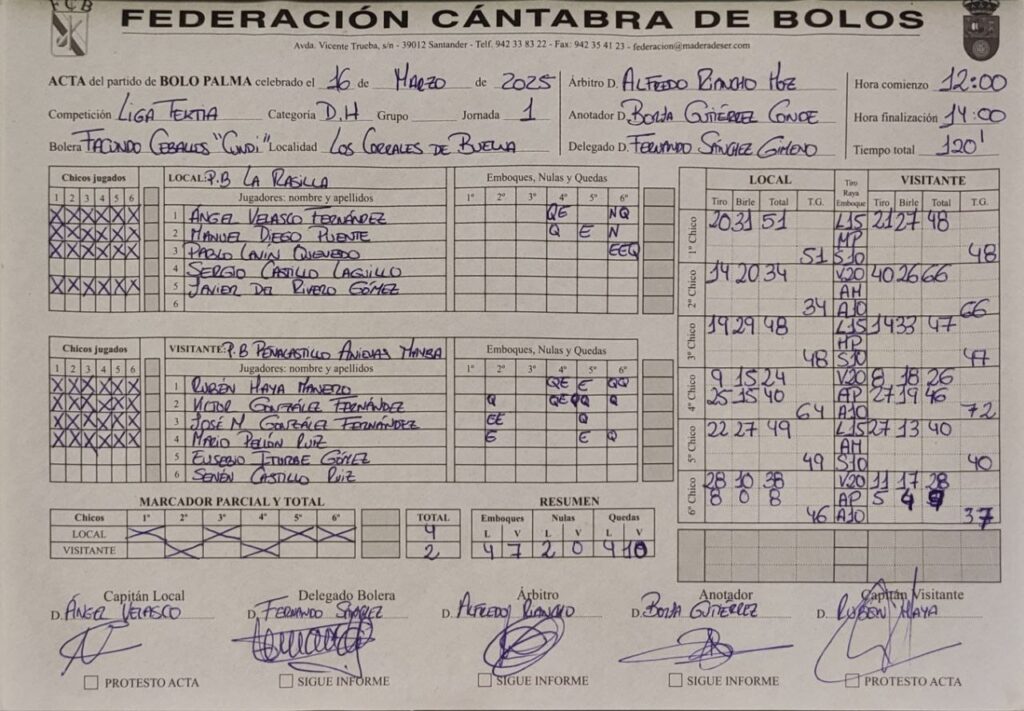 FCB
FEDERACIÓN CÁNTABRA DE BOLOS
Avda. Vicente Trueba, s/n - 39012 Santander - Telf. 942 33 83 22 - Fax: 942 35 41 23 - federacion@maderadeser.com
ACTA del partido de BOLO PALMA celebrado el 16 de MARZO de 2025 Árbitro D. ALFREDO RIANCHO HOZ Hora comienzo 12:00
Competición LIGA TERTIA Categoría D.H Grupo Jornada 1 Anotador D. BORJA GUTIÉRREZ CONDE Hora finalización 14:00
Bolera FACUNDO CEBALLOS "CUNDI" Localidad LOS CORRALES DE BUELNA Delegado D. FERNANDO SÁNCHEZ GIMENO Tiempo total 120'
Chicos jugados LOCAL: P.B LA RASILLA Emboques, Nulas y Quedas
1 2 3 4 5 6 Jugadores: nombre y apellidos 1º 2º 3º 4º 5º 6º
X X X X X X 1 ÁNGEL VELASCO FERNÁNDEZ QE NQ
X X X X X X 2 MANUEL DIEGO PUENTE Q E N
X X X X X X 3 PABLO LAVIN QUEVEDO EEQ
4 SERGIO CASTILLO LAGUILLO
X X X X X X 5 JAVIER DEL RIVERO GÓMEZ
6
Chicos jugados VISITANTE: P.B PEÑACASTILLO ANIEVAS MAYBA Emboques, Nulas y Quedas
1 2 3 4 5 6 Jugadores: nombre y apellidos 1º 2º 3º 4º 5º 6º
X X X X X X 1 RUBÉN HAYA MANERO QE E QQ
X X X X X X 2 VICTOR GONZÁLEZ FERNÁNDEZ Q QEQ Q Q
X X X X X X 3 JOSE M GONZÁLEZ FERNÁNDEZ EE Q
X X X X X X 4 MARIO PELLÓN RUIZ E E Q
5 EUSEBIO ITURBE GÓMEZ
6 SENÉN CASTILLO RUIZ
LOCAL Tiro Raya Emboque VISITANTE
Tiro Birle Total T.G. Tiro Birle Total T.G.
1º Chico 20 31 51 L15 21 27 48
MP
51 S10 48
2º Chico 14 20 34 V20 40 26 66
AM
34 A10 66
3º Chico 19 29 48 L15 14 33 47
MP
48 S10 47
4º Chico 9 15 24 V20 8 18 26
25 15 40 AP 27 19 46
64 A10 72
5º Chico 22 27 49 L15 27 13 40
AM
49 S10 40
6º Chico 28 10 38 V20 11 17 28
8 0 8 AP 5 4 9
46 A10 37
MARCADOR PARCIAL Y TOTAL RESUMEN
Chicos 1º 2º 3º 4º 5º 6º TOTAL Emboques Nulas Quedas
LOCAL X X X X 4 L V L V L V
VISITANTE X X 2 4 7 2 0 4 10
Capitán Local Delegado Bolera Árbitro Anotador Capitán Visitante
D. ÁNGEL VELASCO D. FERNANDO SÁNCHEZ D. ALFREDO RIANCHO D. BORJA GUTIÉRREZ D. RUBÉN HAYA
PROTESTO ACTA SIGUE INFORME SIGUE INFORME SIGUE INFORME PROTESTO ACTA